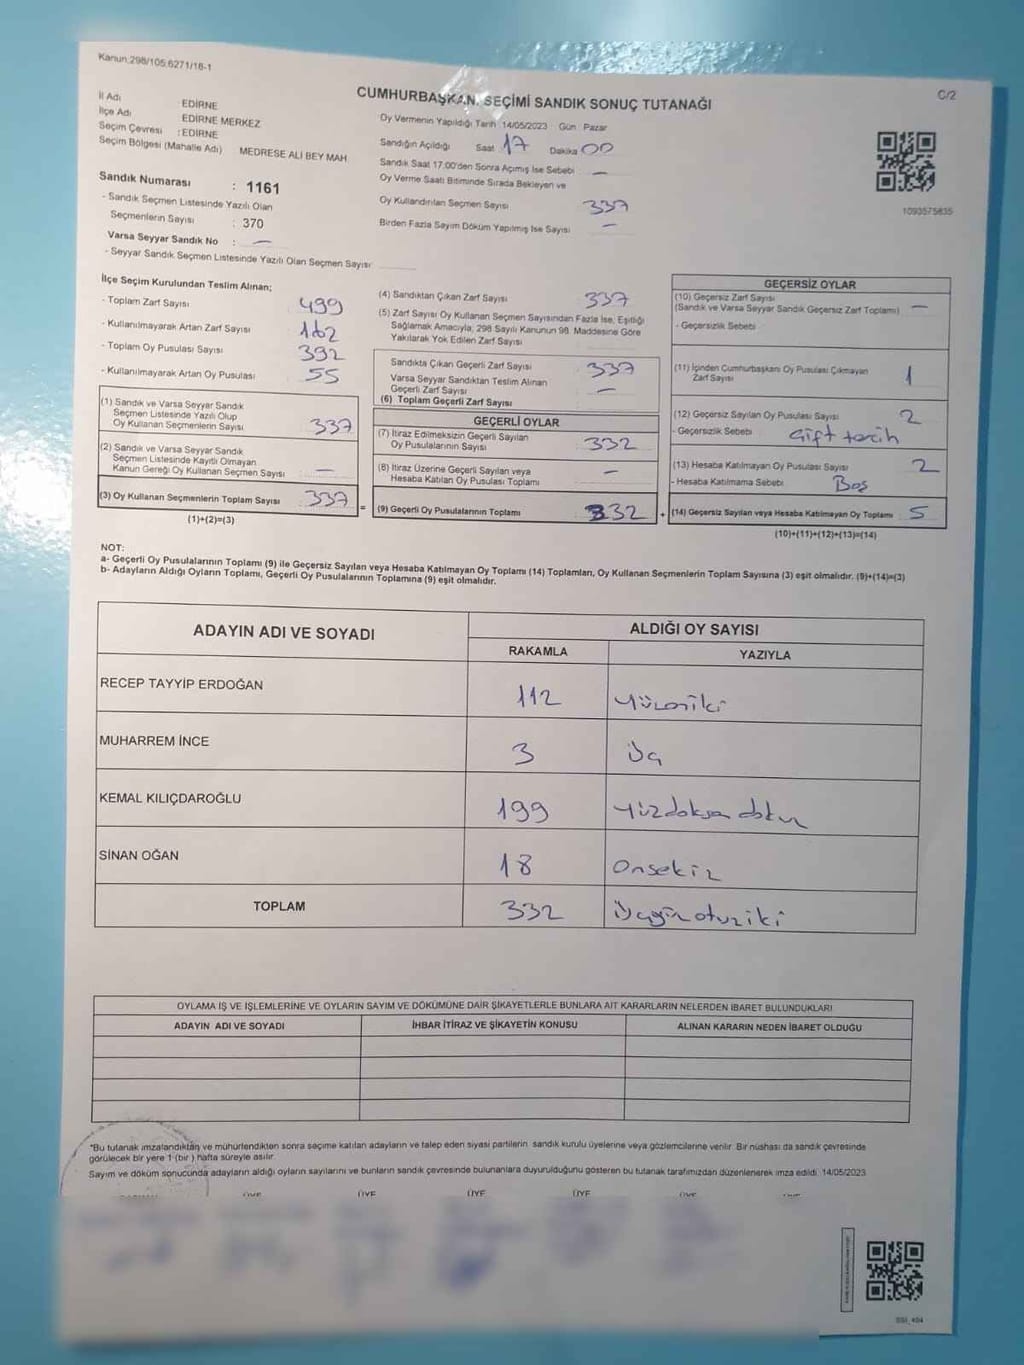 Kanun:298/105,6271/18-1
CUMHURBAŞKANI SEÇİMİ SANDIK SONUÇ TUTANAĞI
C/2
İl Adı EDİRNE
İlçe Adı EDİRNE MERKEZ
Seçim Çevresi : EDİRNE
Seçim Bölgesi (Mahalle Adı) MEDRESE ALİ BEY MAH.
Sandık Numarası : 1161
- Sandık Seçmen Listesinde Yazılı Olan
Seçmenlerin Sayısı : 370
Varsa Seyyar Sandık No : —
- Seyyar Sandık Seçmen Listesinde Yazılı Olan Seçmen Sayısı:
Oy Vermenin Yapıldığı Tarih :14/05/2023 Gün : Pazar
Sandığın Açıldığı Saat 17 Dakika 00
Sandık Saat 17:00'den Sonra Açmış İse Sebebi —
Oy Verme Saati Bitiminde Sırada Bekleyen ve
Oy Kullandırılan Seçmen Sayısı 337
Birden Fazla Sayım Döküm Yapılmış İse Sayısı —
1093575835
İlçe Seçim Kurulundan Teslim Alınan;
- Toplam Zarf Sayısı : 499
- Kullanılmayarak Artan Zarf Sayısı : 162
- Toplam Oy Pusulası Sayısı : 392
- Kullanılmayarak Artan Oy Pusulası : 55
(1) Sandık ve Varsa Seyyar Sandık
Seçmen Listesinde Yazılı Olup
Oy Kullanan Seçmenlerin Sayısı : 337
(2) Sandık ve Varsa Seyyar Sandık
Seçmen Listesinde Kayıtlı Olmayan
Kanun Gereği Oy Kullanan Seçmen Sayısı : —
(3) Oy Kullanan Seçmenlerin Toplam Sayısı : 337
(1)+(2)=(3)
=
(4) Sandıktan Çıkan Zarf Sayısı : 337
(5) Zarf Sayısı Oy Kullanan Seçmen Sayısından Fazla İse, Eşitliği
Sağlamak Amacıyla; 298 Sayılı Kanunun 98. Maddesine Göre
Yakılarak Yok Edilen Zarf Sayısı
Sandıkta Çıkan Geçerli Zarf Sayısı : 337
Varsa Seyyar Sandıktan Teslim Alınan
Geçerli Zarf Sayısı : —
(6) Toplam Geçerli Zarf Sayısı
GEÇERLİ OYLAR
(7) İtiraz Edilmeksizin Geçerli Sayılan
Oy Pusulalarının Sayısı : 332
(8) İtiraz Üzerine Geçerli Sayılan veya
Hesaba Katılan Oy Pusulası Toplamı : —
(9) Geçerli Oy Pusulalarının Toplamı : 332
+
GEÇERSİZ OYLAR
(10) Geçersiz Zarf Sayısı
(Sandık ve Varsa Seyyar Sandık Geçersiz Zarf Toplamı) : —
- Geçersizlik Sebebi
(11) İçinden Cumhurbaşkanı Oy Pusulası Çıkmayan
Zarf Sayısı : 1
(12) Geçersiz Sayılan Oy Pusulası Sayısı : 2
- Geçersizlik Sebebi : Çift tercih
(13) Hesaba Katılmayan Oy Pusulası Sayısı : 2
- Hesaba Katılmama Sebebi : Boş
(14) Geçersiz Sayılan veya Hesaba Katılmayan Oy Toplamı : 5
(10)+(11)+(12)+(13)=(14)
NOT:
a- Geçerli Oy Pusulalarının Toplamı (9) ile Geçersiz Sayılan veya Hesaba Katılmayan Oy Toplamı (14) Toplamları, Oy Kullanan Seçmenlerin Toplam Sayısına (3) eşit olmalıdır. (9)+(14)=(3)
b- Adayların Aldığı Oyların Toplamı, Geçerli Oy Pusulalarının Toplamına (9) eşit olmalıdır.
ADAYIN ADI VE SOYADI
ALDIĞI OY SAYISI
RAKAMLA
YAZIYLA
RECEP TAYYİP ERDOĞAN 112 Yüzoniki
MUHARREM İNCE 3 Üç
KEMAL KILIÇDAROĞLU 199 Yüzdoksan dokuz
SİNAN OĞAN 18 Onsekiz
TOPLAM 332 Üçyüzotuziki
OYLAMA İŞ VE İŞLEMLERİNE VE OYLARIN SAYIM VE DÖKÜMÜNE DAİR ŞİKAYETLERLE BUNLARA AİT KARARLARIN NELERDEN İBARET BULUNDUKLARI
ADAYIN ADI VE SOYADI
İHBAR İTİRAZ VE ŞİKAYETİN KONUSU
ALINAN KARARIN NEDEN İBARET OLDUĞU
*Bu tutanak imzalandıktan ve mühürlendikten sonra seçime katılan adayların ve talep eden siyasi partilerin sandık kurulu üyelerine veya gözlemcilerine verilir. Bir nüshası da sandık çevresinde
görülecek bir yere 1 (bir) hafta süreyle asılır.
Sayım ve döküm sonucunda adayların aldığı oyların sayılarını ve bunların sandık çevresinde bulunanlara duyurulduğunu gösteren bu tutanak tarafımızdan düzenlenerek imza edildi. 14/05/2023
ÜYE ÜYE ÜYE ÜYE ÜYE